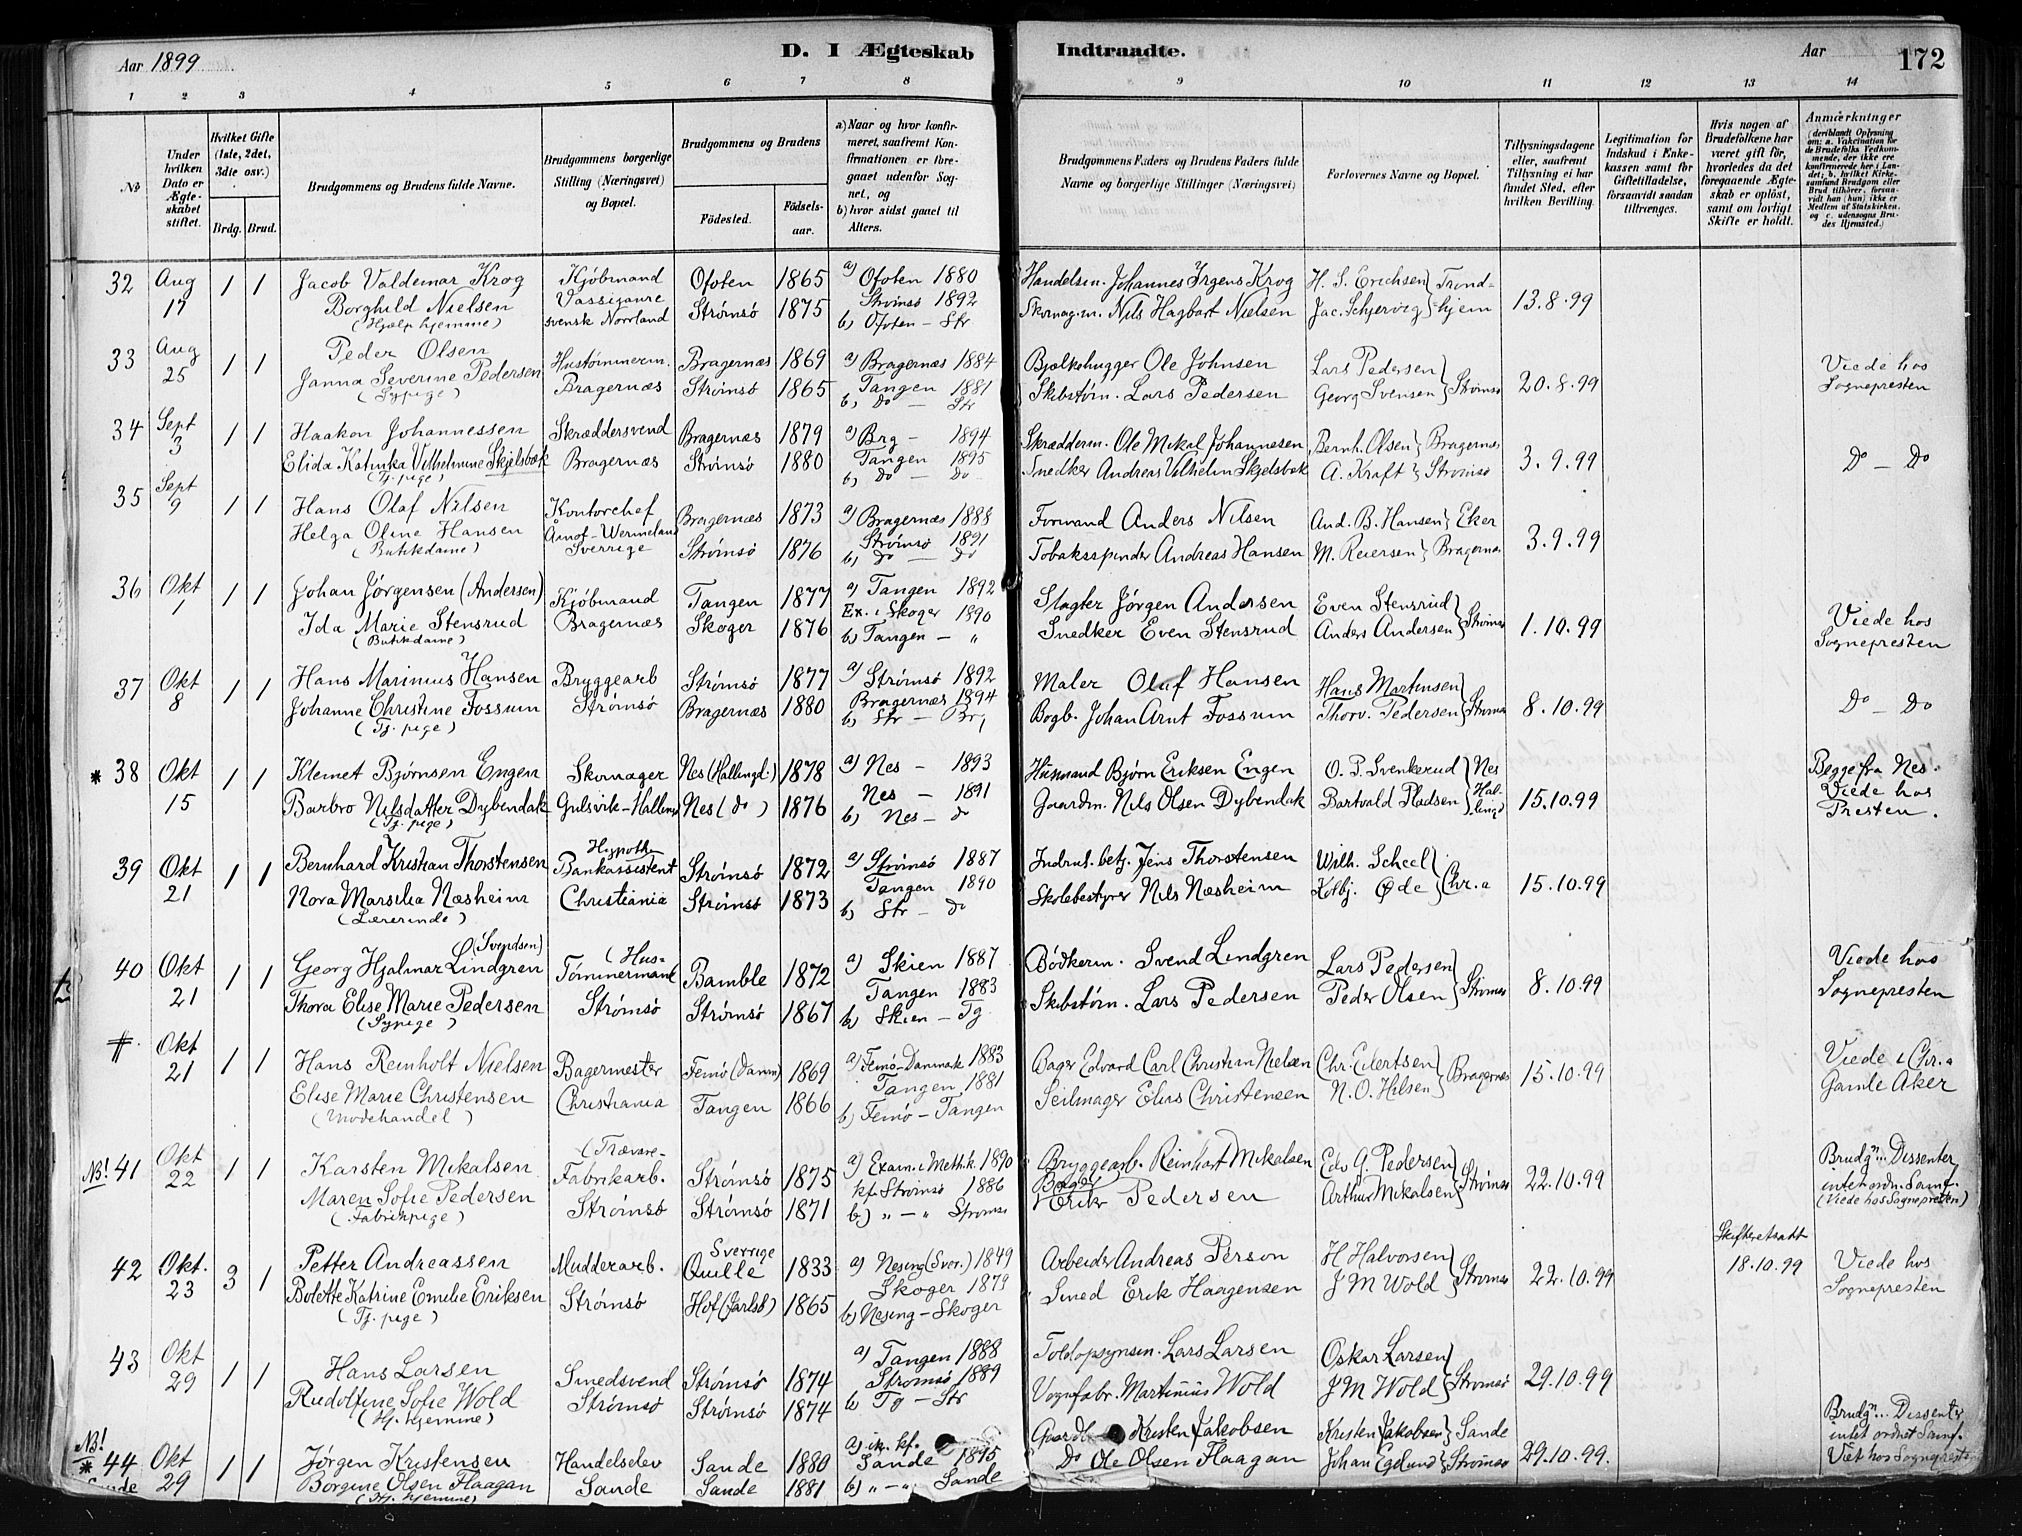 Aar 1899
D. I Ægteskab Indtraadte.
Aar
172
1 2 3 4 5 6 7 8 9 10 11 12 13 14
No
Under hvilken Dato er Ægteskabet stiftet.
Hvilket Gifte (1ste, 2det, 3die osv.)
Brdg. Brud.
Brudgommens og Brudens fulde Navne.
Brudgommens borgerlige Stilling (Næringsvei) og Bopæl.
Brudgommens og Brudens
Födested.
Födselsaar.
a) Naar og hvor konfirmeret, saafremt Konfirmationen er foregaaet udenfor Sognet, og
b) hvor sidst gaaet til Alters.
Brudgommens Faders og Brudens Faders fulde Navne og borgerlige Stillinger (Næringsvei)
Forlovernes Navne og Bopæl.
Tillysningsdagene eller, saafremt Tillysning ei har fundet Sted, efter hvilken Bevilling.
Legitimation for Indskud i Enkekassen samt for Giftetilladelse, forsaavidt saadan tiltrænges.
Hvis nogen af Brudefolkene har været gift för, hvorledes da det foregaaende Ægteskab er oplöst, samt om lovligt Skifte er holdt.
Anmærkninger
(deriblandt Oplysning om: a. Vaksination for de Brudefolks Vedkommende, der ikke ere konfirmerede her i Landet; b. hvilket Kirkesamfund Brudgom eller Brud tilhörer, forsaavidt han (hun) ikke er Medlem af Statskirken, og c. udensogns Brudes Hjemsted.)
32 Aug 17 1 1 Jacob Valdemar Krog Kjöbmand Ofoten 1865 a) Ofoten 1880 Handelsm. Johannes Irgens Krog H. S. Erichsen } Trond-
Borghild Nielsen Vassijaure Strømsö 1875 Strömsö 1892 Skomag.m. Nils Hagbart Nielsen Jac. Schjervig } hjem 13.8.99
(Hjælp hjemme) svensk Norrland b) Ofoten - Str
33 Aug 25 1 1 Peder Olsen Hustömmerm. Bragernæs 1869 a) Bragernæs 1884 Bjælkehugger Ole Johnsen Lars Pedersen } 20.8.99 Viede hos
Janna Severine Pedersen Bragernæs Strømsö 1865 Tangen 1881 Skibstöm. Lars Pedersen Georg Svensen } Strömsö Sognepresten
(Sypige) b) Do - Str
34 Sept 3 1 1 Haakon Johannessen Skræddersvend Bragernæs 1879 a) Brg - 1894 Skrædderm. Ole Mikal Johannesen Bernh. Olsen } Bragernæs
Elida Katinka Vilhelmine Skjelsbæk Bragernæs Strømsö 1880 Tangen 1895 Snedker Andreas Vilhelm Skjelsbæk A. Kraft } Strømsö 3.9.99 Do - Do
(Tj. pige) b) Do - Do
35 Sept 9 1 1 Hans Olaf Nilsen Kontorchef Bragernæs 1873 a) Bragernæs 1888 Formand Anders Nilsen And. B. Hansen } Eker
Helga Oline Hansen Åmot-Wermeland Strømsö 1876 Strømsö 1891 Tobaksspinder Andreas Hansen M. Reiersen } Bragernæs 3.9.99
(Butikdame) Sverrige b) do - do
36 Okt 1 1 1 Johan Jörgensen (Andersen) Kjöbmand Tangen 1877 a) Tangen 1892 Slagter Jörgen Andersen Even Stensrud } Viede hos
Ida Marie Stensrud Bragernæs Skoger 1876 Ex. i Skoger 1890 Snedker Even Stensrud Anders Andersen } Strömsö 1.10.99 Sognepresten
(Butikdame) b) Tangen - "
37 Okt 8 1 1 Hans Marinius Hansen Bryggearb Strömsö 1877 a) Strömsö 1892 Maler Oluf Hansen Hans Martinsen }
Johanne Christine Fossum Strömsö Bragernæs 1880 Bragernæs 1894 Bogb. Johan Arnt Fossum Thorv. Pedersen } Strömsö 8.10.99 Do - Do
(Tj. pige) b) Str - Brg
* 38 Okt 15 1 1 Klemet Bjørnsen Engen Skomager Nes (Hallingd:) 1878 a) Nes - 1893 Husmand Bjørn Eriksen Engen O. P. Svenkerud } Nes Begge fra Nes.
Barbro Nilsdatter Dybendak Gulsvik-Halling Nes (do) 1876 Nes - 1891 Gaardm. Nils Olsen Dybendak Bartvald Pladsen } Hal-lingd 15.10.99 Viede hos
(Tj. pige) b) Nes - do Presten.
39 Okt 21 1 1 Bernhard Kristian Thorstensen Hypoth. Bankassistent Strömsö 1872 a) Strömsö 1887 Indrul. betj. Jens Thorstensen Wilh. Scheel }
Nora Marsilia Næsheim Christiania Strömsö 1873 Tangen 1890 Skolebestyrer Nils Næsheim Kolbj. Øde } Chr.a 15.10.99
(Lærerinde) b) Str - do
40 Okt 21 1 1 (Svendsen) (Hus-
Georg Hjalmar Lindgren Tömmermand Bamble 1872 a) Skien 1887 Bödkerm. Svend Lindgren Lars Pedersen } Viede hos
Thora Elise Marie Pedersen Strömsö Strömsö 1867 Tangen 1883 Skibstöm. Lars Pedersen Peder Olsen } Strömsö 8.10.99 Sognepresten
(Sypige) b) Skien - Tg
# Okt 21 1 1 Hans Reinholt Nielsen Bagermester Femö (Danm) 1869 a) Femö-Danmark 1883 Bager Edvard Carl Christian Nielsen Chr. Eilertsen } Viede i Chr.a
Elise Marie Christensen Christiania Tangen 1866 Tangen 1881 Seilmager Elias Christensen N. O. Hilsen } Bragernæs 15.10.99 Gamle Aker
(Modehandel) b) Femö - Tangen
NB! 41 Okt 22 1 1 Karsten Mikalsen (Trævare- Fabrikarb. Strömsö 1875 a) Exam. i Meth.k. 1890 Bryggearb. Reinhart Mikalsen Eds G. Pedersen } Brudgm. Dissenter
Maren Sofie Pedersen Strömsö Strömsö 1871 kf. Strömsö 1886 Bager Erik Pedersen Arthur Mikalsen } Strömsö 22.10.99 intet ordn. Samf.
(Fabrikpige) b) " - " Strömsö (Viede hos Sognepresten)
42 Okt. 23 3 1 Petter Andreassen Mudderarb. Sverrige Quille 1833 a) Nesing (Sver.) 1849 Arbeider Andreas Person H Halvorsen } Skifteretsatt 18.10.99 Viede hos
Bolette Katrine Emelie Eriksen Strömsö Hof (Jarlsb) 1865 Skoger 1879 Smed Erik Haagensen J M Wold } Strömsö 22.10.99 Sognepresten
(Tj. pige) b) Nesing - Skoger
43 Okt 29 1 1 Hans Larsen Smedsvend Strömsö 1874 a) Tangen 1888 Toldopsynsm. Lars Larsen Oskar Larsen }
Rudolfine Sofie Wold Strömsö Strömsö 1874 Strömsö 1889 Vognfabr. Martinius Wold J M Wold } Strömsö 29.10.99
(Hj. hjemme) b) Tg - Str
NB! * 44 Okt 29 1 1 Jørgen Kristensen Handelselev Sande 1880 a) ik. kf. Gaardb. Kristen Jakobsen Kristen Jakobsen } Sande Brudgm. Dissenter
Sande Börgine Olsen Flaagan Sande Sande 1881 Sande 1895 Do Ole Olsen Flaagan Johan Egelund } Strömsö 29.10.99. intet ordnet Samf.
(Hj. hjemme) b) " - " Sande Viet hos Sogneprest